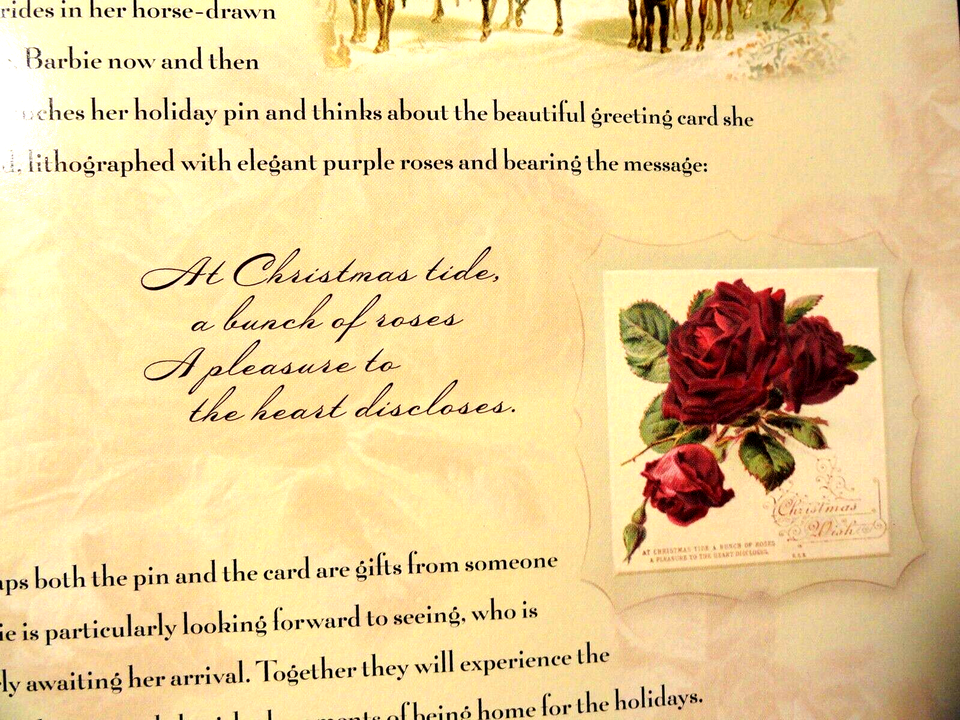 rides in her horse-drawn
Barbie now and then
her holiday pin and thinks about the beautiful greeting card she
lithographed with elegant purple roses and bearing the message:
At Christmas tide,
a bunch of roses
A pleasure to
the heart discloses.
Christmas
Wish
AT CHRISTMAS TIDE A BUNCH OF ROSES
A PLEASURE TO THE HEART DISCLOSES.
both the pin and the card are gifts from someone
is particularly looking forward to seeing, who is
awaiting her arrival. Together they will experience the
of being home for the holidays.